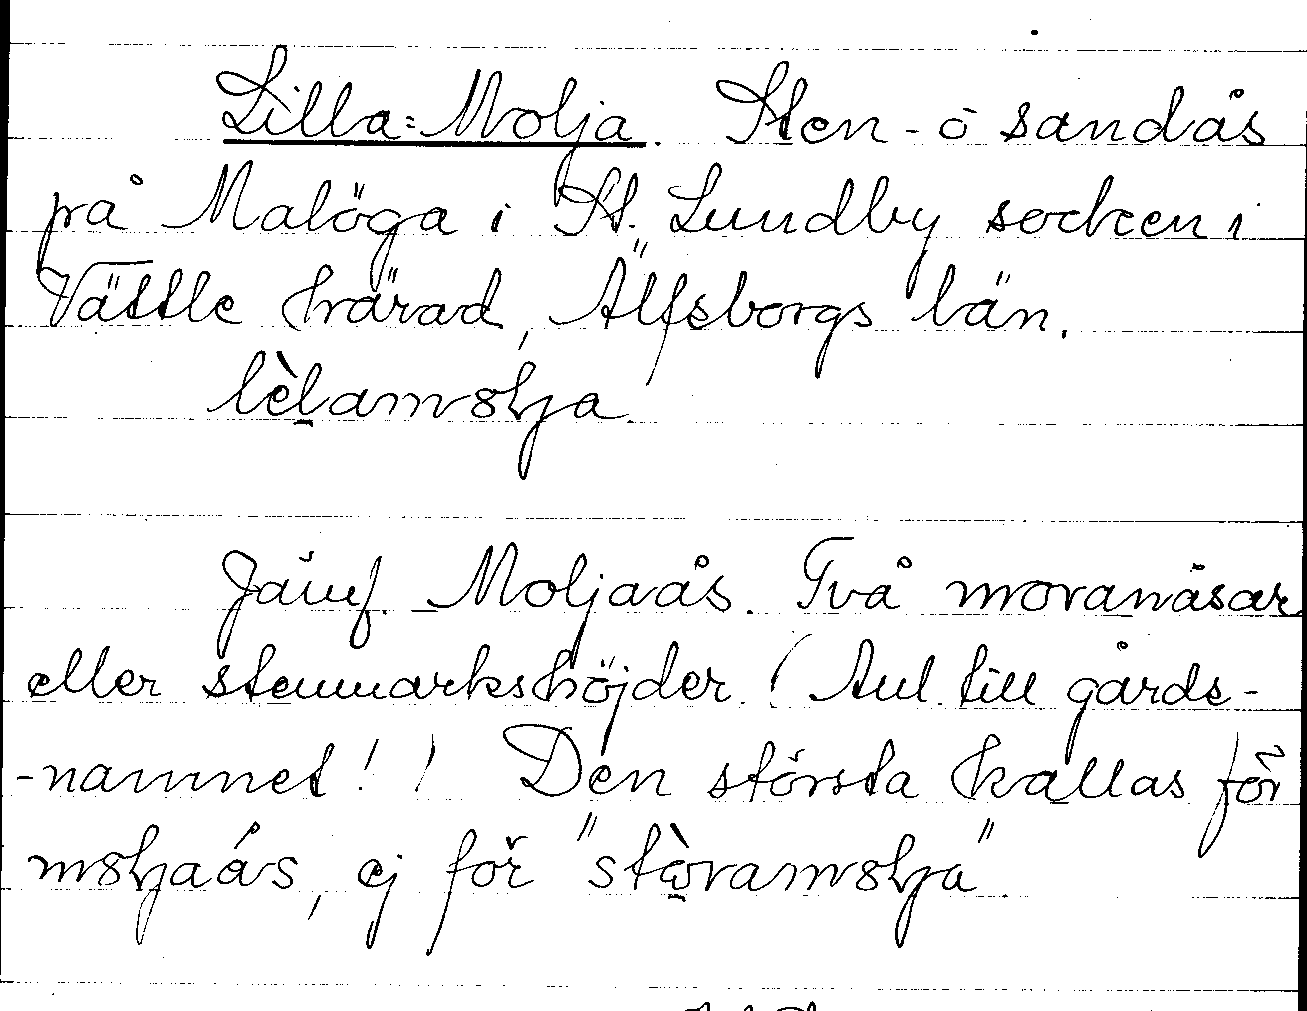 Lilla=Molja. Sten- o sandås
på Malöga i St. Lundby socken i
Vättle härad, Älfsborgs län.
lèlamolja.
Jämf. Moljaås. Två moranåsar
eller stenmarkshöjder. (Anl. till gårds-
-namnet!) Den största kallas för
moljaås, ej för "stòramolja".